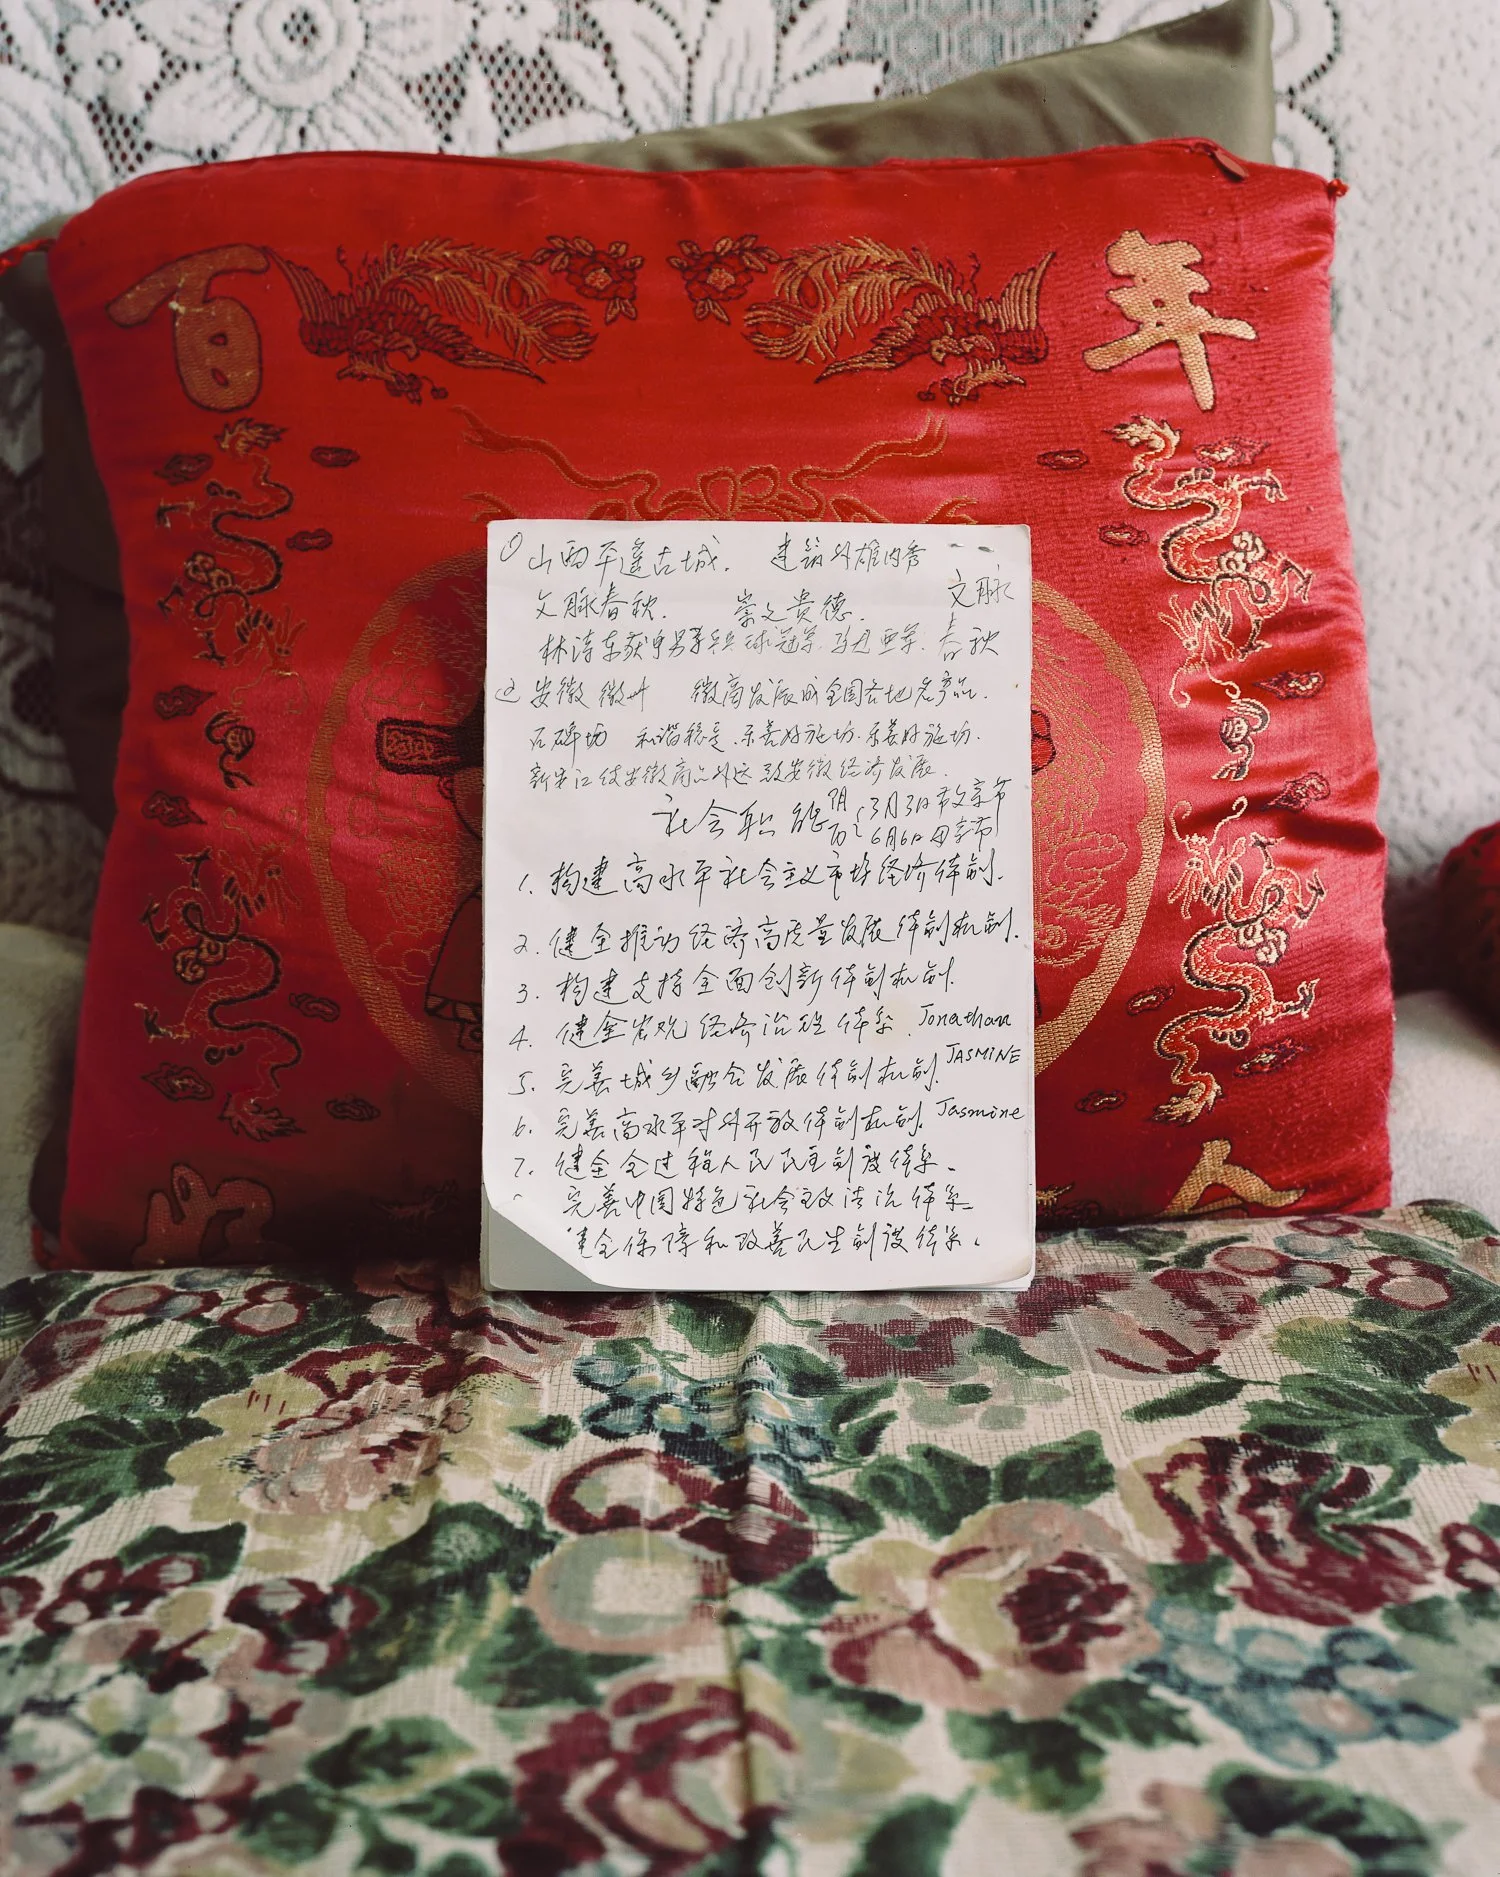 百 年
① 山西平遥古城. 建筑外雄内秀
文脉春秋. 崇文贵德. 文脉
林诗东获 男子乒乓球冠军. 亚军. 春秋
② 安徽 徽州 徽商发展成全国各地名产品.
石碑坊 和谐稳定.乐善好施坊.乐善好施坊.
新安江使安徽商品外运 致安徽经济发展.
社会职能 阴 3月3日 父亲节
历 6月6日 母亲节
1. 构建高水平社会主义市场经济体制.
2. 健全推动经济高质量发展体制机制.
3. 构建支持全面创新体制机制.
4. 健全宏观经济治理体系. Jonathan
5. 完善城乡融合发展体制机制. JASMINE
6. 完善高水平对外开放体制机制. Jasmine
7. 健全全过程人民民主制度体系.
完善中国特色社会主义法治体系
健全保障和改善民生制度体系.
好 合